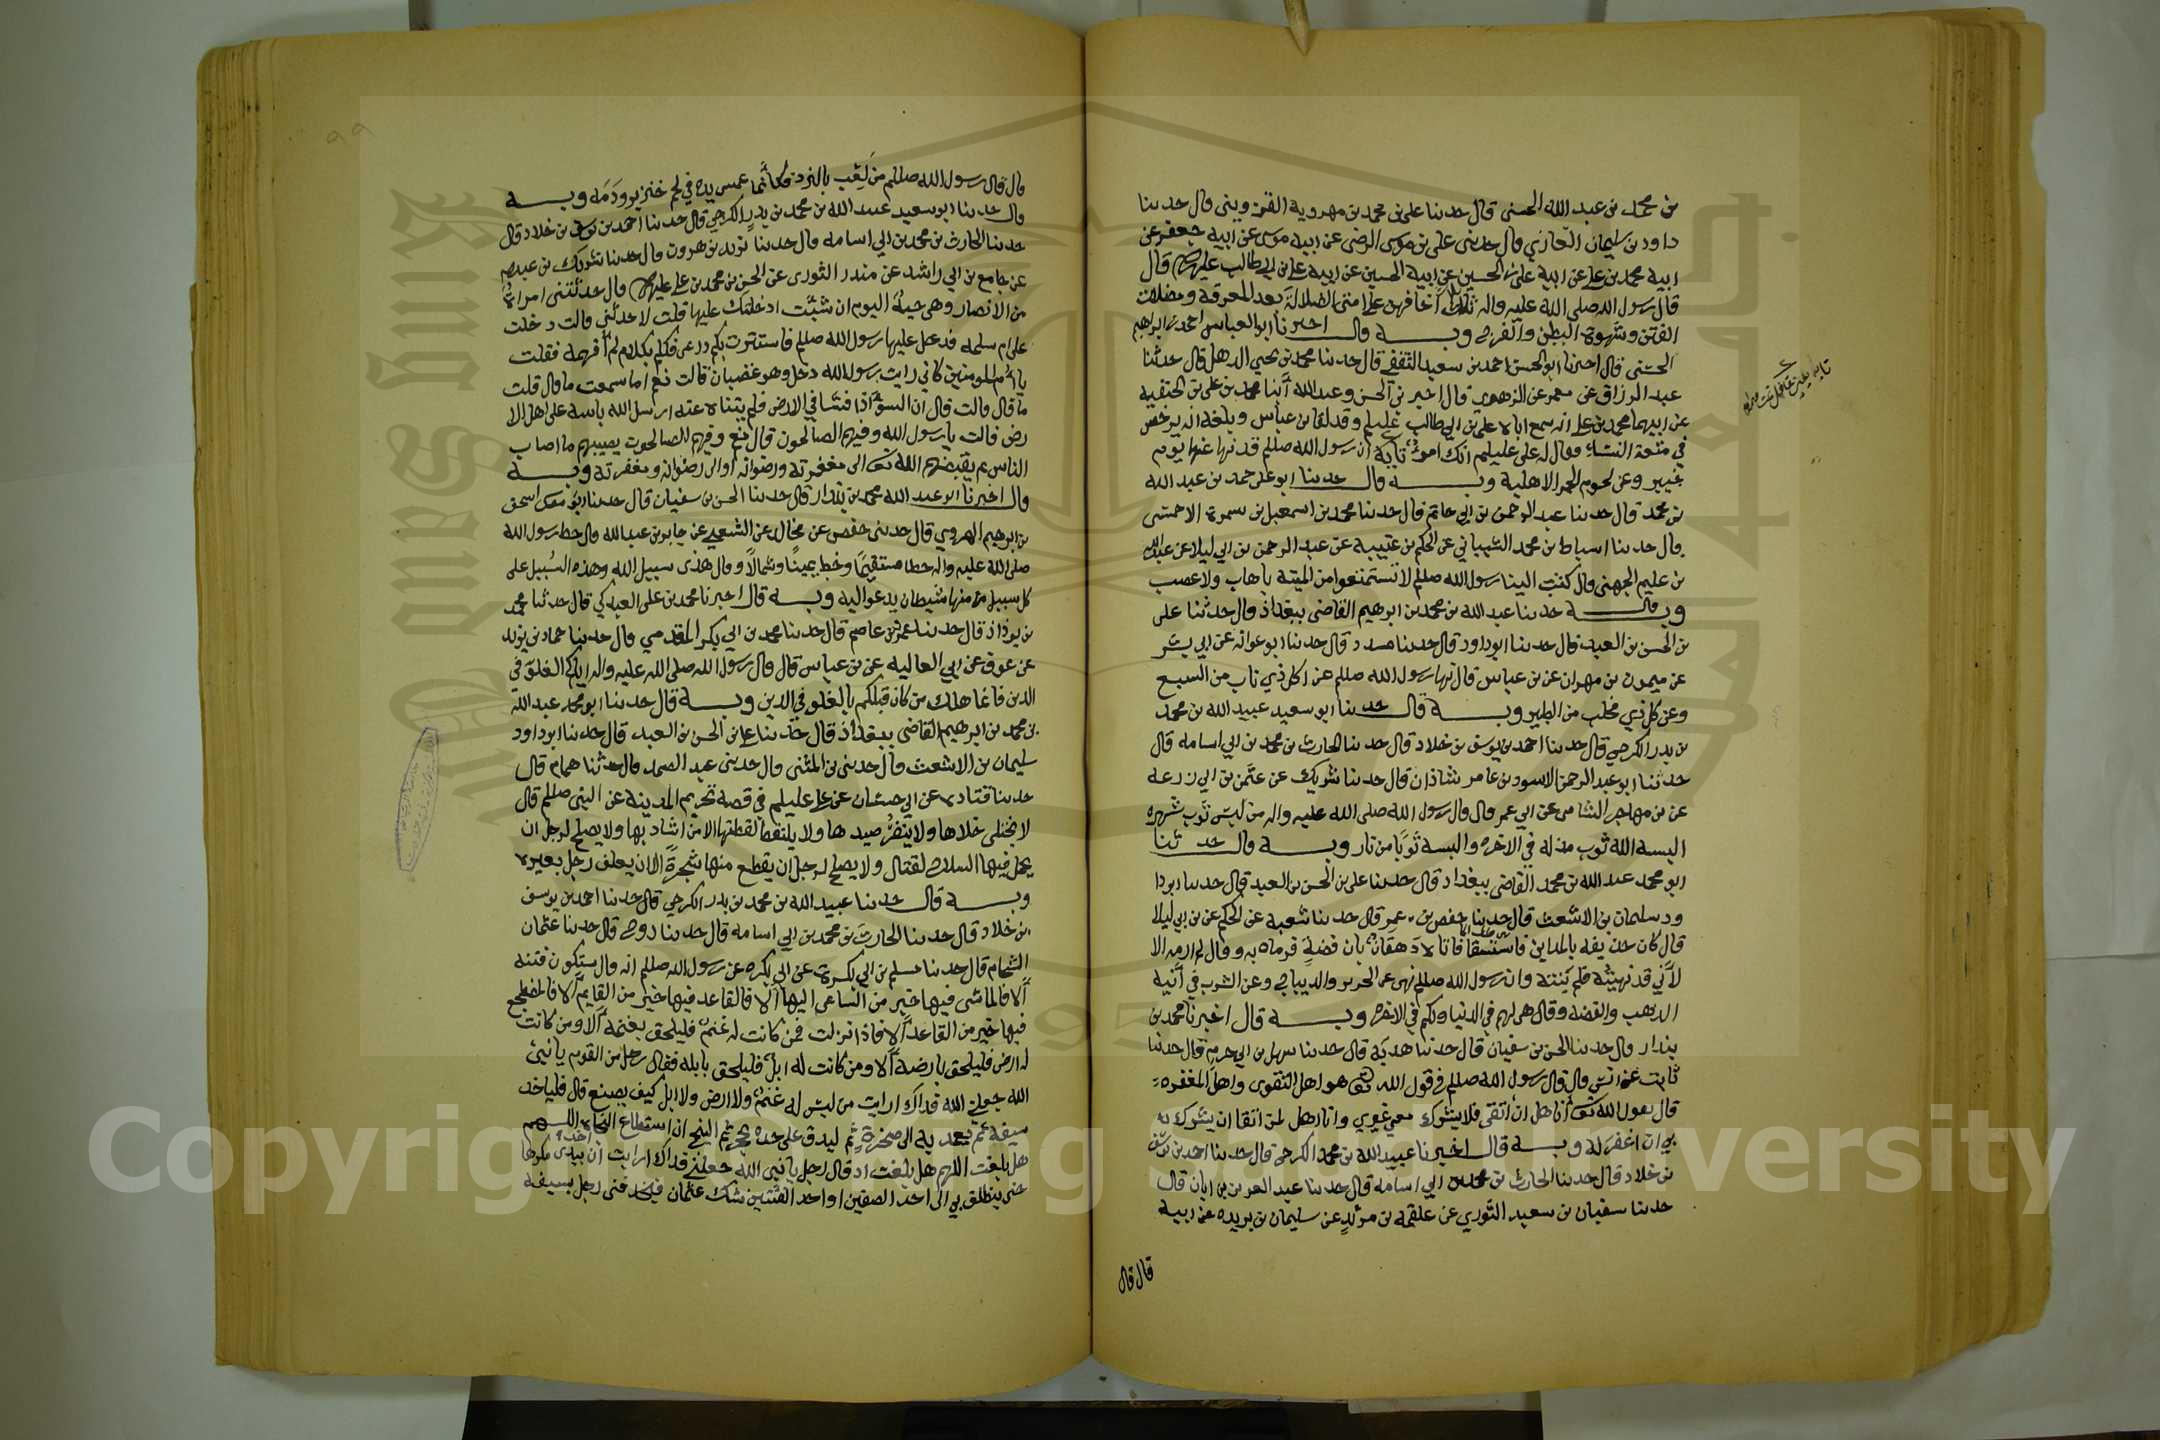 بن محمد بن عبد الله الحسني قال حدثنا علي بن محمد بن مهروية القزويني قال حدثنا
داود بن سليمان الغازي قال حدثني علي بن موسى الرضى عن ابيه موسى عن ابيه جعفر عن
ابيه محمد بن علي عن ابيه علي بن الحسين عن ابيه الحسين عن ابيه علي بن ابي طالب عليهم قال
قال رسول الله صلى الله عليه واله ثلاث اخافهن على امتي الضلالة بعد المعرفة ومضلات
الفتن وشهوة البطن والفرج وبه قال اخبرنا ابو العباس احمد بن ابراهيم
الحسني قال اخبرنا ابو الحسن احمد بن سعيد الثقفي قال حدثنا محمد بن يحيى الذهلي قال حدثنا
عبد الرزاق عن معمر عن الزهري قال اخبرني الحسن وعبد الله أبنا محمد بن علي بن الحنفية
عن ابيهما محمد بن علي انه سمع اباه علي بن ابي طالب عليلم وقد لقا بن عباس وبلغه انه يرخص
في متعة النساء فقال له علي عليلم انك امرؤ تايه ان رسول الله صللم قد نها عنها يوم
خيبر وعن لحوم الحمر الاهلية وبه قال حدثنا ابو علي حمد بن عبد الله
بن محمد قال حدثنا عبد الرحمن بن ابي حاتم قال حدثنا محمد بن اسمعيل بن سمرة الاحمسي
قال حدثنا اسباط بن محمد الشيباني عن الحكم بن عتيبة عن عبد الرحمن بن ابي ليلا عن عبد الله
بن عليم الجهني قال كتب الينا رسول الله صللم لا تستمتعوا من الميتة باهاب ولا عصب
وبه قال حدثنا عبد الله بن محمد بن ابرهيم القاضي ببغداذ قال حدثنا علي
بن الحسن بن العبد قال حدثنا ابو داود قال حدثنا مسدد قال حدثنا ابو عوانه عن ابي بشر
عن ميمون بن مهران عن بن عباس قال نها رسول الله صللم عن اكل ذي ناب من السبع
وعن كل ذي مخلب من الطير وبه قال حدثنا ابو سعيد عبيد الله بن محمد
بن بدر الكرجي قال حدثنا احمد بن يوسف بن خلاد قال حدثنا الحارث بن محمد بن ابي اسامه قال
حدثنا ابو عبد الرحمن الاسود بن عامر شاذان قال حدثنا شريك عن عثمن بن ابي زرعه
عن بن مهاجر الشامي عن ابي عمر قال قال رسول الله صلى الله عليه واله من لبس ثوب شهره
البسه الله ثوب مذله في الاخره والبسه ثوبا من نار وبه قال حدثنا
ابو محمد عبد الله بن محمد القاضي ببغداد قال حدثنا علي بن الحسن بن العبد قال حدثنا ابو دا
ود سليمان بن الاشعث قال حدثنا حفص بن عمر قال حدثنا شعبة عن الحكم عن بن ابي ليلا
قال كان حذيفه بالمداين فاستسقا فاتاه دهقان بان فضة فرماه به وقال لم ارمه الا
لأني قد نهيته فلم ينته وان رسول الله صللم نهى عن الحرير والديباج وعن الشرب في آنية
الذهب والفضه وقال هي لهم في الدنيا ولكم في الاخره وبه قال اخبرنا محمد بن
بندار قال حدثنا الحسن بن سفيان قال حدثنا هدبة قال حدثنا سهل بن ابي حزم قال حدثنا
ثابت عن انس قال قال رسول الله صللم في قول الله تعى هو اهل التقوى واهل المغفره
قال يقول الله تعى أنا اهل ان أتقى فلا يشرك معي غيري وانا اهل لمن اتقا ان يشرك به
بي ان اغفر له وبه قال اخبرنا عبيد الله بن محمد الكرجي قال حدثنا احمد بن يوسف
بن خلاد قال حدثنا الحارث بن محمد بن ابي اسامه قال حدثنا عبد العزيز بن ابان قال
حدثنا سفيان بن سعيد الثوري عن علقمه بن مرثد عن سليمان بن بريده عن ابيه
قال قال
قال قال رسول الله صللم من لعب بالنرد فكأنما غمس يده في لحم خنزير ودمه وبه
قال حدثنا ابو سعيد عبيد الله بن محمد بن بدر الكرجي قال حدثنا احمد بن يوسف بن خلاد قال
حدثنا الحارث بن محمد بن ابي اسامه قال حدثنا يزيد بن هرون قال حدثنا شريك بن عبد الله
عن جامع بن ابي راشد عن منذر الثوري عن الحسن بن محمد بن علي عليهم قال حدثتني امراة
من الانصار وهي حية اليوم ان شئت ادخلتك عليها قلت لا حدثني قالت دخلت
على ام سلمه فدخل عليها رسول الله صللم فاستترت بكم درعي فكلم بكلام لم أفهمه فقلت
يا أم المومنين كاني رايت رسول الله دخل وهو غضبان قالت نعم اما سمعت ما قال قلت
ما قال قالت قال ان السوء اذا فشا في الارض فلم يتناه عنه ارسل الله باسه على اهل الا
رض قالت يا رسول الله وفيهم الصالحون قال نعم وفيهم الصالحون يصيبهم ما اصاب
الناس ثم يقبضهم الله تعى الى مغفرته ورضوانه او الى رضوانه ومغفرته وبه
قال اخبرنا ابو عبد الله محمد بن بندار قال حدثنا الحسن بن سفيان قال حدثنا ابو معمر اسمعيل
بن ابرهيم الهروي قال حدثني حفص عن مجالد عن الشعبي عن جابر بن عبد الله قال خط رسول الله
صلى الله عليه واله خطا مستقيما وخط يمينا وشمالا وقال هذي سبيل الله وهذه السبيل على
كل سبيل منها شيطان يدعو اليه وبه قال اخبرنا محمد بن علي العبدكي قال حدثنا محمد
بن يزداذ قال حدثنا عمرو بن عاصم قال حدثنا محمد بن ابي بكر المقدمي قال حدثنا حماد بن يزيد
عن عوف عن ابي العاليه عن بن عباس قال قال رسول الله صلى الله عليه واله اياكم الغلو في
الدين فانما هلك من كان قبلكم بالغلو في الدين وبه قال حدثنا ابو محمد عبد الله
بن محمد بن ابرهيم القاضي ببغداذ قال حدثنا علي بن الحسن بن العبد قال حدثنا ابو داود
سليمان بن الاشعث قال حدثني بن المثنى قال حدثني عبد الصمد قال حدثنا همام قال
حدثنا قتاده عن ابي حسان عن علي عليلم في قصه تحريم المدينه عن النبي صللم قال
لا يختلى خلاها ولا ينفر صيدها ولا يلتقط لقطتها الا من اشاد بها ولا يصلح لرجل ان
يحمل فيها السلاح لقتال ولا يصلح لرجل ان يقطع منها شجرة الا ان يعلف رجل بعيره
وبه قال حدثنا عبيد الله بن محمد بن بدر الكرجي قال حدثنا احمد بن يوسف
بن خلاد قال حدثنا الحارث بن محمد بن ابي اسامه قال حدثنا روح قال حدثنا عثمان
الشحام قال حدثنا مسلم بن ابي بكرة عن ابي بكره عن رسول الله صللم انه قال ستكون فتنه
ألا فالماشي فيها خير من الساعي اليها ألا فالقاعد فيها خير من القايم ألا فالمضطجع
فيها خير من القاعد ألا فاذا نزلت فمن كانت له غنم فليلحق بغنمه ألا ومن كانت
له ارض فليلحق بارضه ألا ومن كانت له ابل فليلحق بابله فقال رجل من القوم يا نبي
الله جعلني الله فداك ارايت من ليس له غنم ولا ارض ولا ابل كيف يصنع قال فلياخذ
سيفه ثم يعمد به الى صخرة ثم ليدق على حده بحجر ثم لينج ان استطاع النجاه اللهم
هل بلغت اللهم هل بلغت اذ قال رجل يا نبي الله جعلني فداك ارايت ان اخذ بيدي مكرها
حتى ينطلق بي الى احد الصفين او احد الفئتين شك عثمان فيحذفني رجل بسيفه
٩٩
King Saud University
Copyright © King Saud University